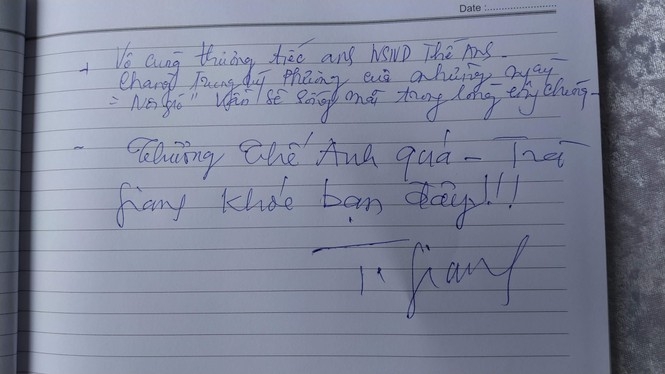 Date :
+ Vô cùng thương tiếc anh NSND Thế Anh -
Chàng Trung úy Phương của những ngày
= Nổi gió" vẫn sẽ sống mãi trong lòng công chúng -
- Thương Thế Anh quá - Trà
Giang khóc bạn đây!!!
Tr Giang